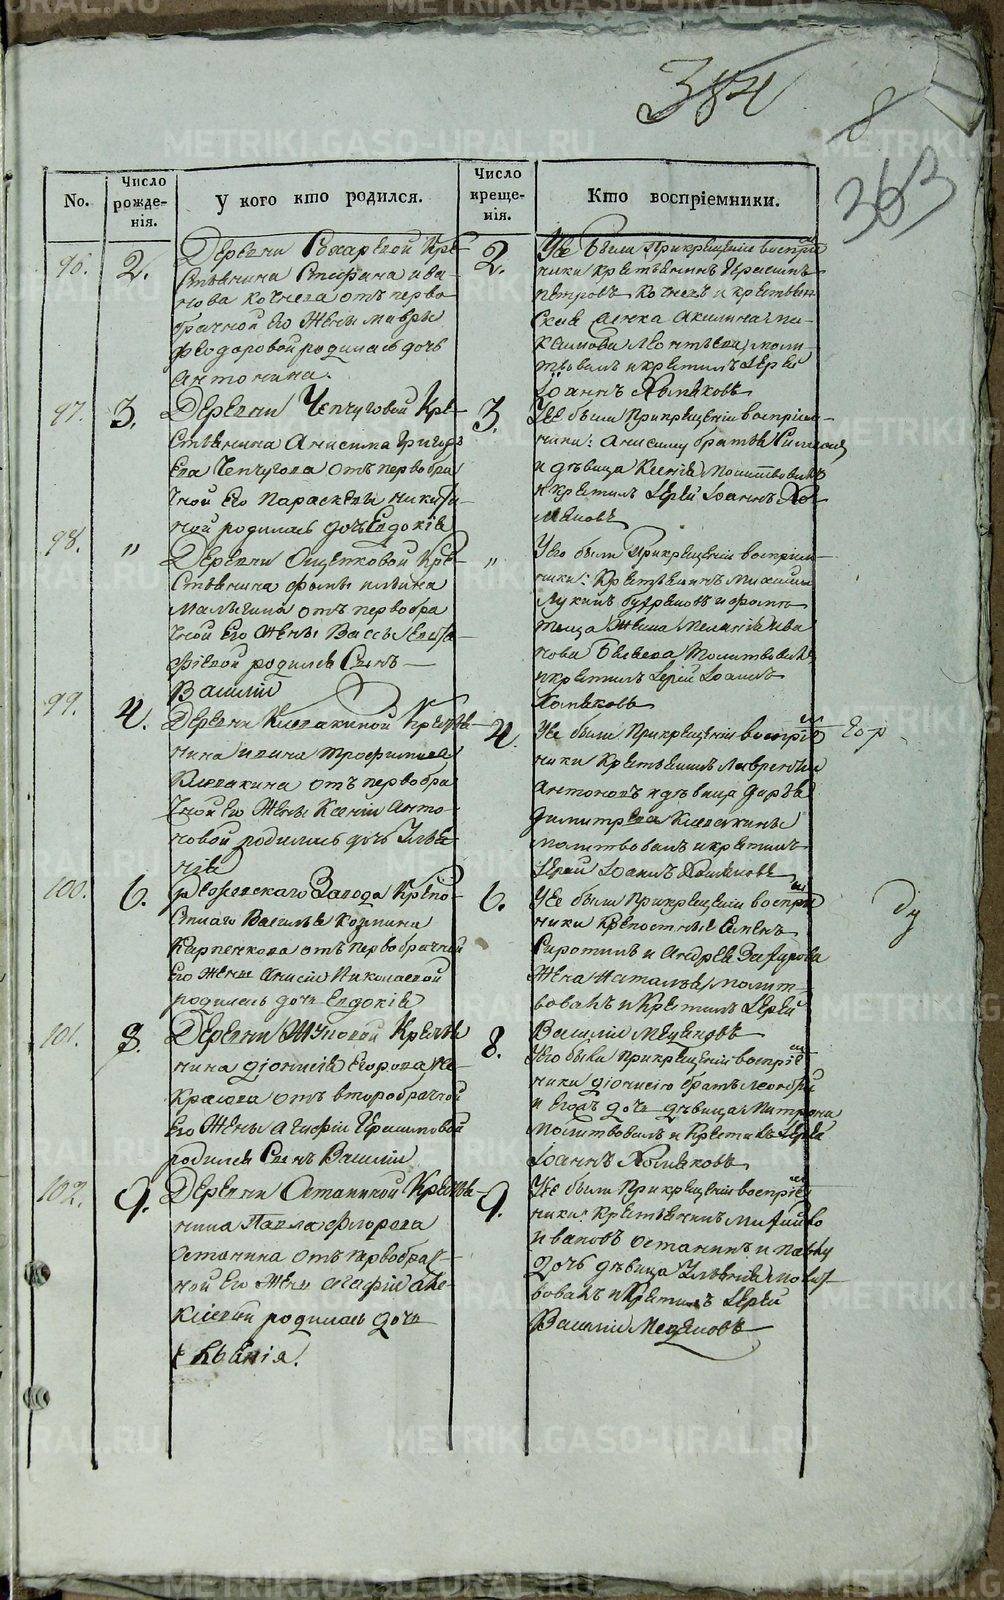 384
8
363
No.
Число рожде-
нія.
У кого кто родился.
Число креще-
нія.
Кто воспріемники.
96.
2.
Деревни Сохаревой Кре
стьянина Стефана Ива
нова Кочнева отъ перво
брачной его жены Мавры
Феодоровой родилась дочь
Антонина.
2.
Ув были при крещеніи воспріем
ники крестьянинъ
Петровъ Кочневъ и крестьян
ская Акилина
молит
твовалъ и крестилъ Іерей
Іоаннъ Хомяковъ
97.
3.
Деревни Чепчуговой Кре
стьянина Анисима Григорь
ева Чепчугова отъ первобра
чной его Параскевы Никити
ной родилась дочь Евдокія
3.
Уее были при крещеніи воспріем
ники: Анисиму братъ
и дѣвица Ксенія молитвовалъ
и крестилъ Іерей Іоаннъ Хо
мяковъ
98.
"
Деревни Ощепковой Кре
стьянина Фомы Ильина
Малыгина отъ первобра
чной его жены Вассы Евста
фіевой родился сынъ
Василій
"
Уего были при крещеніи воспріем
ники: Крестьянинъ Михаилъ
Лукинъ и
жена Меланія Ива
нова молитвовалъ
и крестилъ Іерей Іоаннъ
Хомяковъ
99.
4.
Деревни Клевакиной Крестья
нина Ивана Трофимова
Клевакина отъ первобра
чной его жены Ксеніи Анто
новой родилась дочь Улья
нія
4.
Уее были при крещеніи воспріем
ники Крестьянинъ Лаврентій
Антоновъ и дѣвица Дарья
Димитрева Клевакины
молитвовалъ и крестилъ
Іерей Іоаннъ Хомяковъ
Егор
100.
6.
Режевскаго Завода Крѣпо
стнаго Василья Козмина
Карпенкова отъ первобрачной
его жены Анисіи Николаевой
родилась дочь Евдокія
6.
Уее были при крещеніи воспріем
ники крѣпостные Семенъ
Сиротинъ и Андрея
жена Наталья молит
вовалъ и крестилъ Іерей
Василій Мещяковъ
ду
101.
8.
Деревни Жуковой Крестья
нина Діонисія Егорова
отъ второбрачной
его жены Агафіи
родился сынъ Василій
8.
Уего были при крещеніи воспріем
ники Діонисію братъ
и Егора дочь дѣвица Матрона
молитвовалъ и крестилъ Іерей
Іоаннъ Хомяковъ
102.
9.
Деревни Останиной Крестья
нина Павла Флорова
Останина отъ первобра
чной его жены Агафіи Але
ксѣевой родилась дочь
Евгенія.
9.
Уее были при крещеніи воспріем
ники: Крестьянинъ
Ивановъ Останинъ и Павлу
дочь дѣвица Ульянія молит
вовалъ и крестилъ Іерей
Василій Мещяковъ